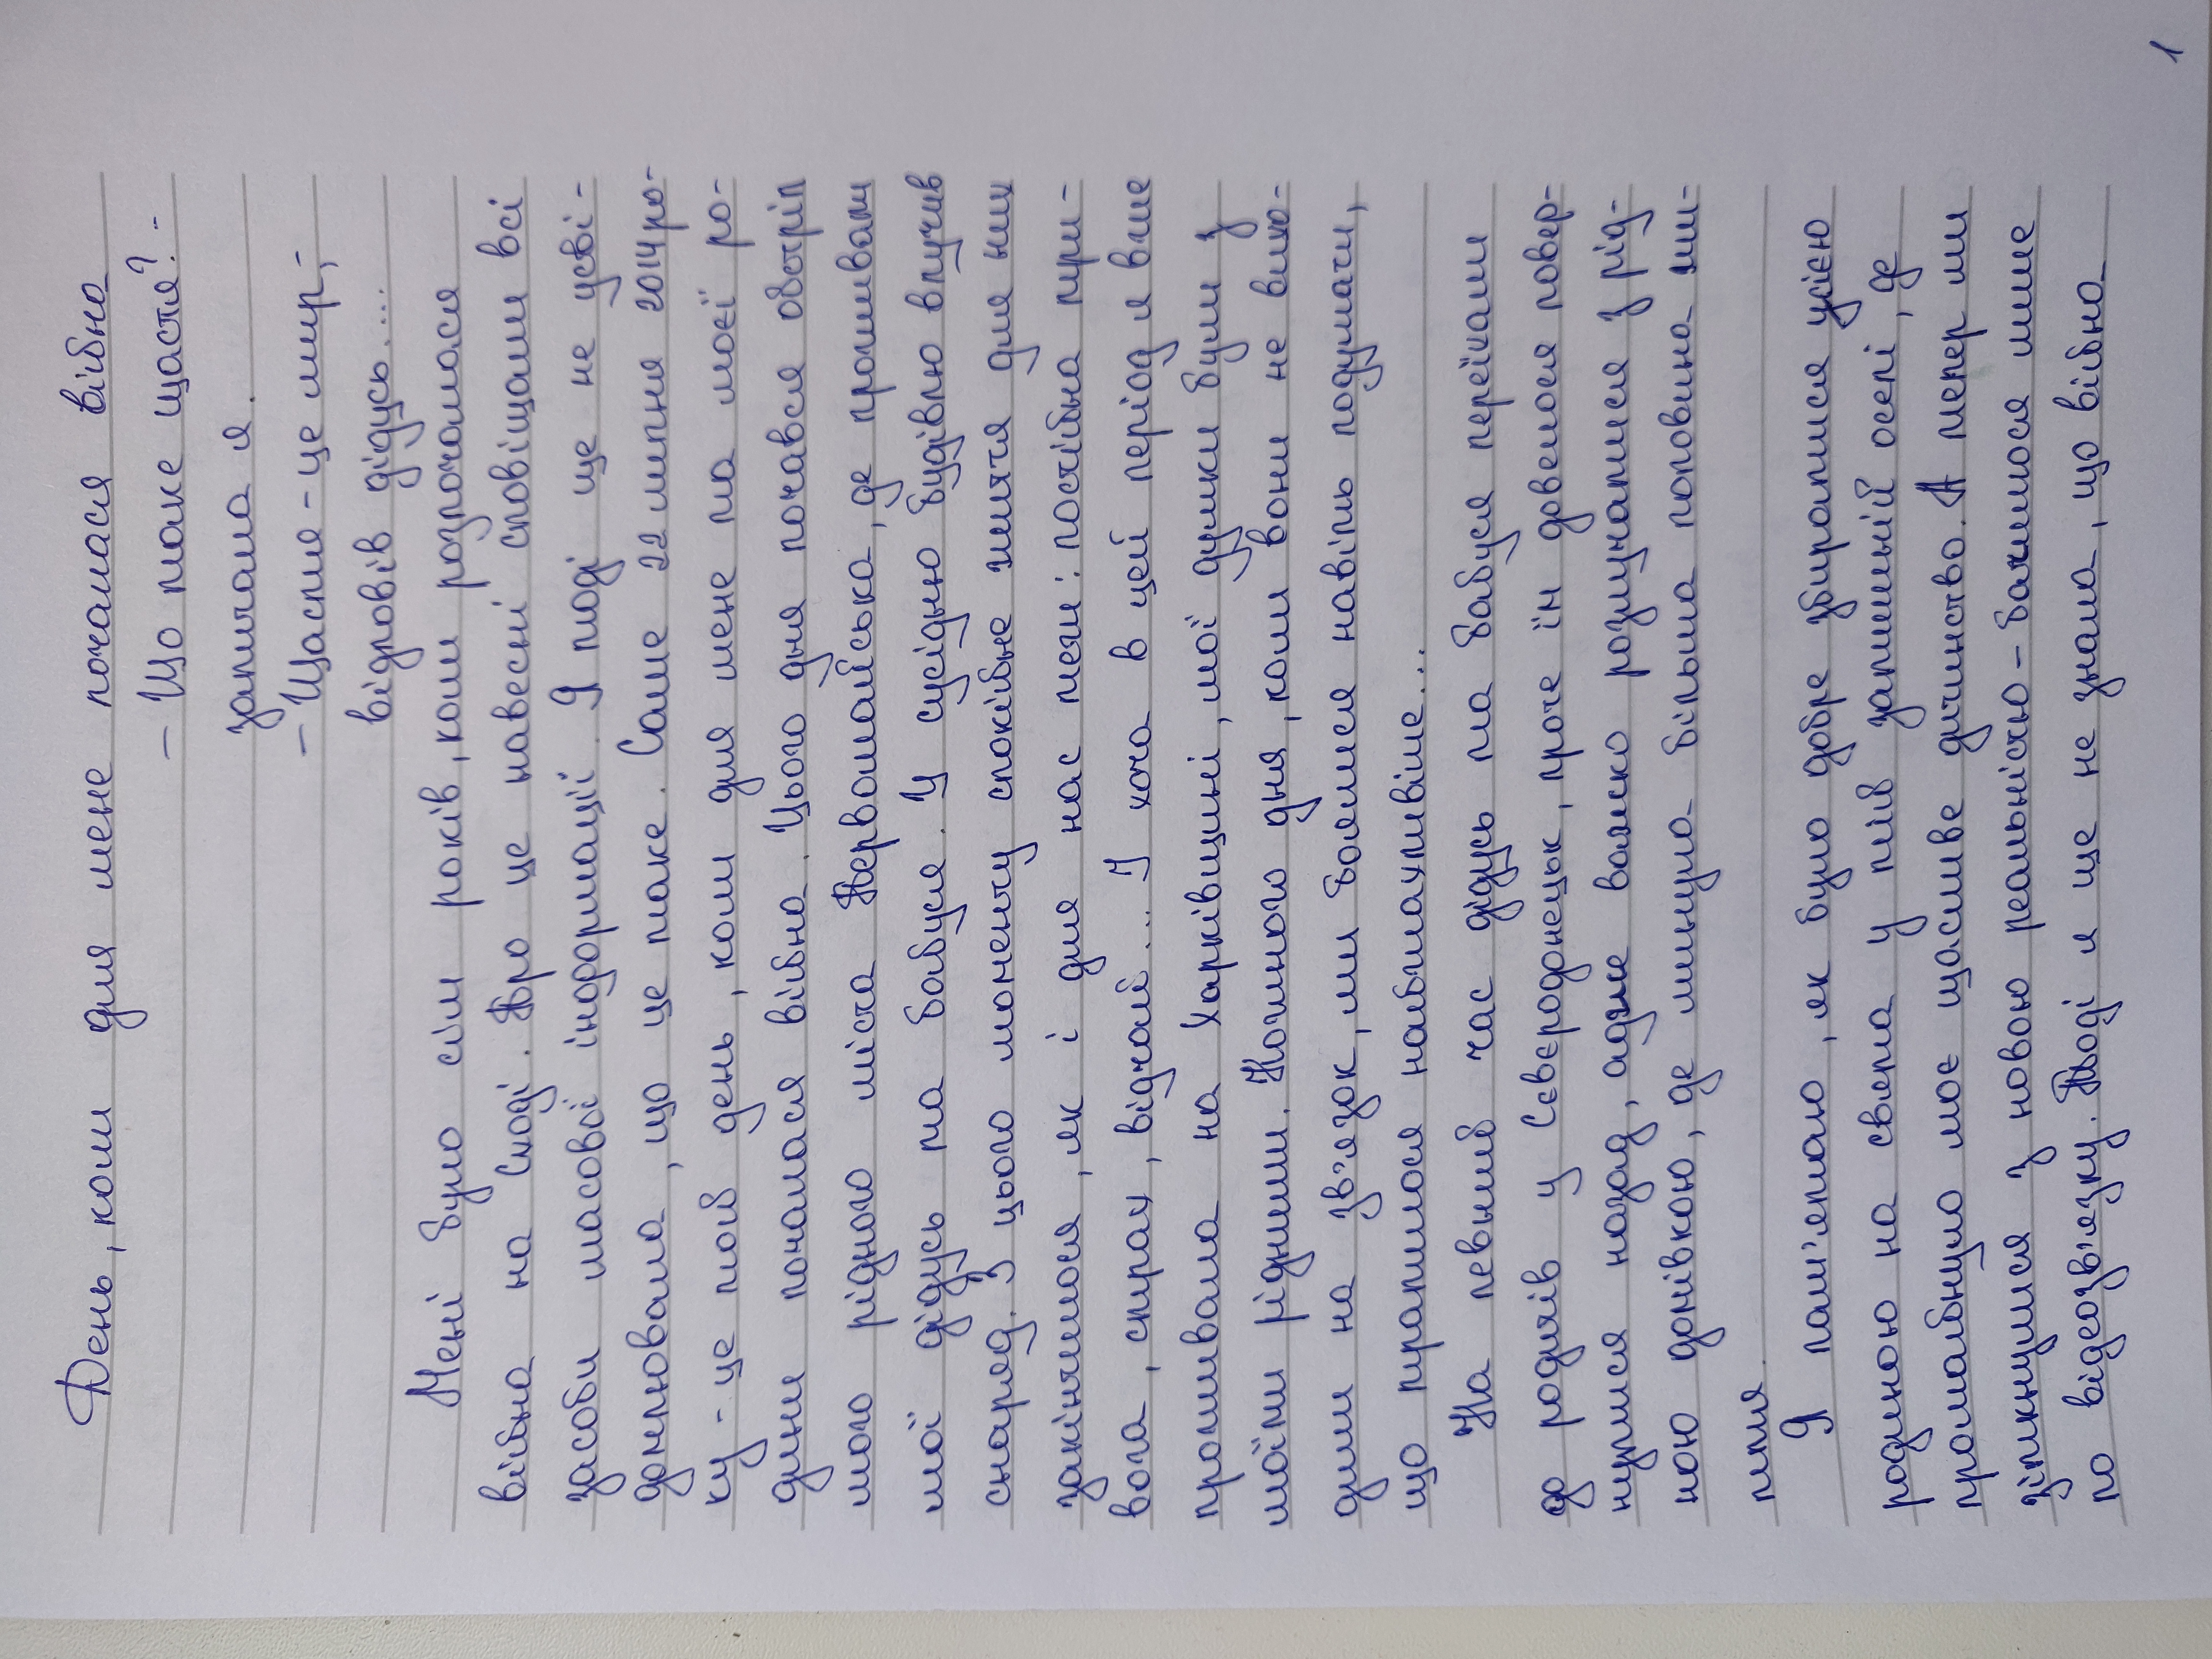 День, коли для мене почалася війна
– Що таке щастя? -
запитала я.
– Щастя - це мир, -
відповів дідусь...
Мені було сім років, коли розпочалася
війна на Сході. Про це навесні сповіщали всі
засоби масової інформації. Я тоді ще не усві-
домлювала, що це таке. Саме 22 липня 2014 ро-
ку - це той день, коли для мене та моєї ро-
дини почалася війна. Цього дня почався обстріл
мого рідного міста Первомайська, де проживали
мої дідусь та бабуся. У сусідню будівлю влучив
снаряд. З цього моменту спокійне життя для них
закінчилося, як і для нас теж: постійна три-
вога, страх, відчай... І хоча в цей період я вже
проживала на Харківщині, мої думки були з
моїми рідними. Кожного дня, коли вони не вихо-
дили на зв'язок, ми боялися навіть подумати,
що трапилося найжахливіше...
На певний час дідусь та бабуся переїхали
до родичів у Сєвєродонецьк, проте їм довелося повер-
нутися назад, адже важко розлучатися з рід-
ною домівкою, де минула більша половина жит-
тя.
Я пам'ятаю, як було добре збиратися усією
родиною на свята у тій затишній оселі, де
промайнуло моє щасливе дитинство. А тепер ми
зіткнулися з новою реальністю - бачитися лише
по відеозв'язку. Тоді я ще не знала, що війна
1